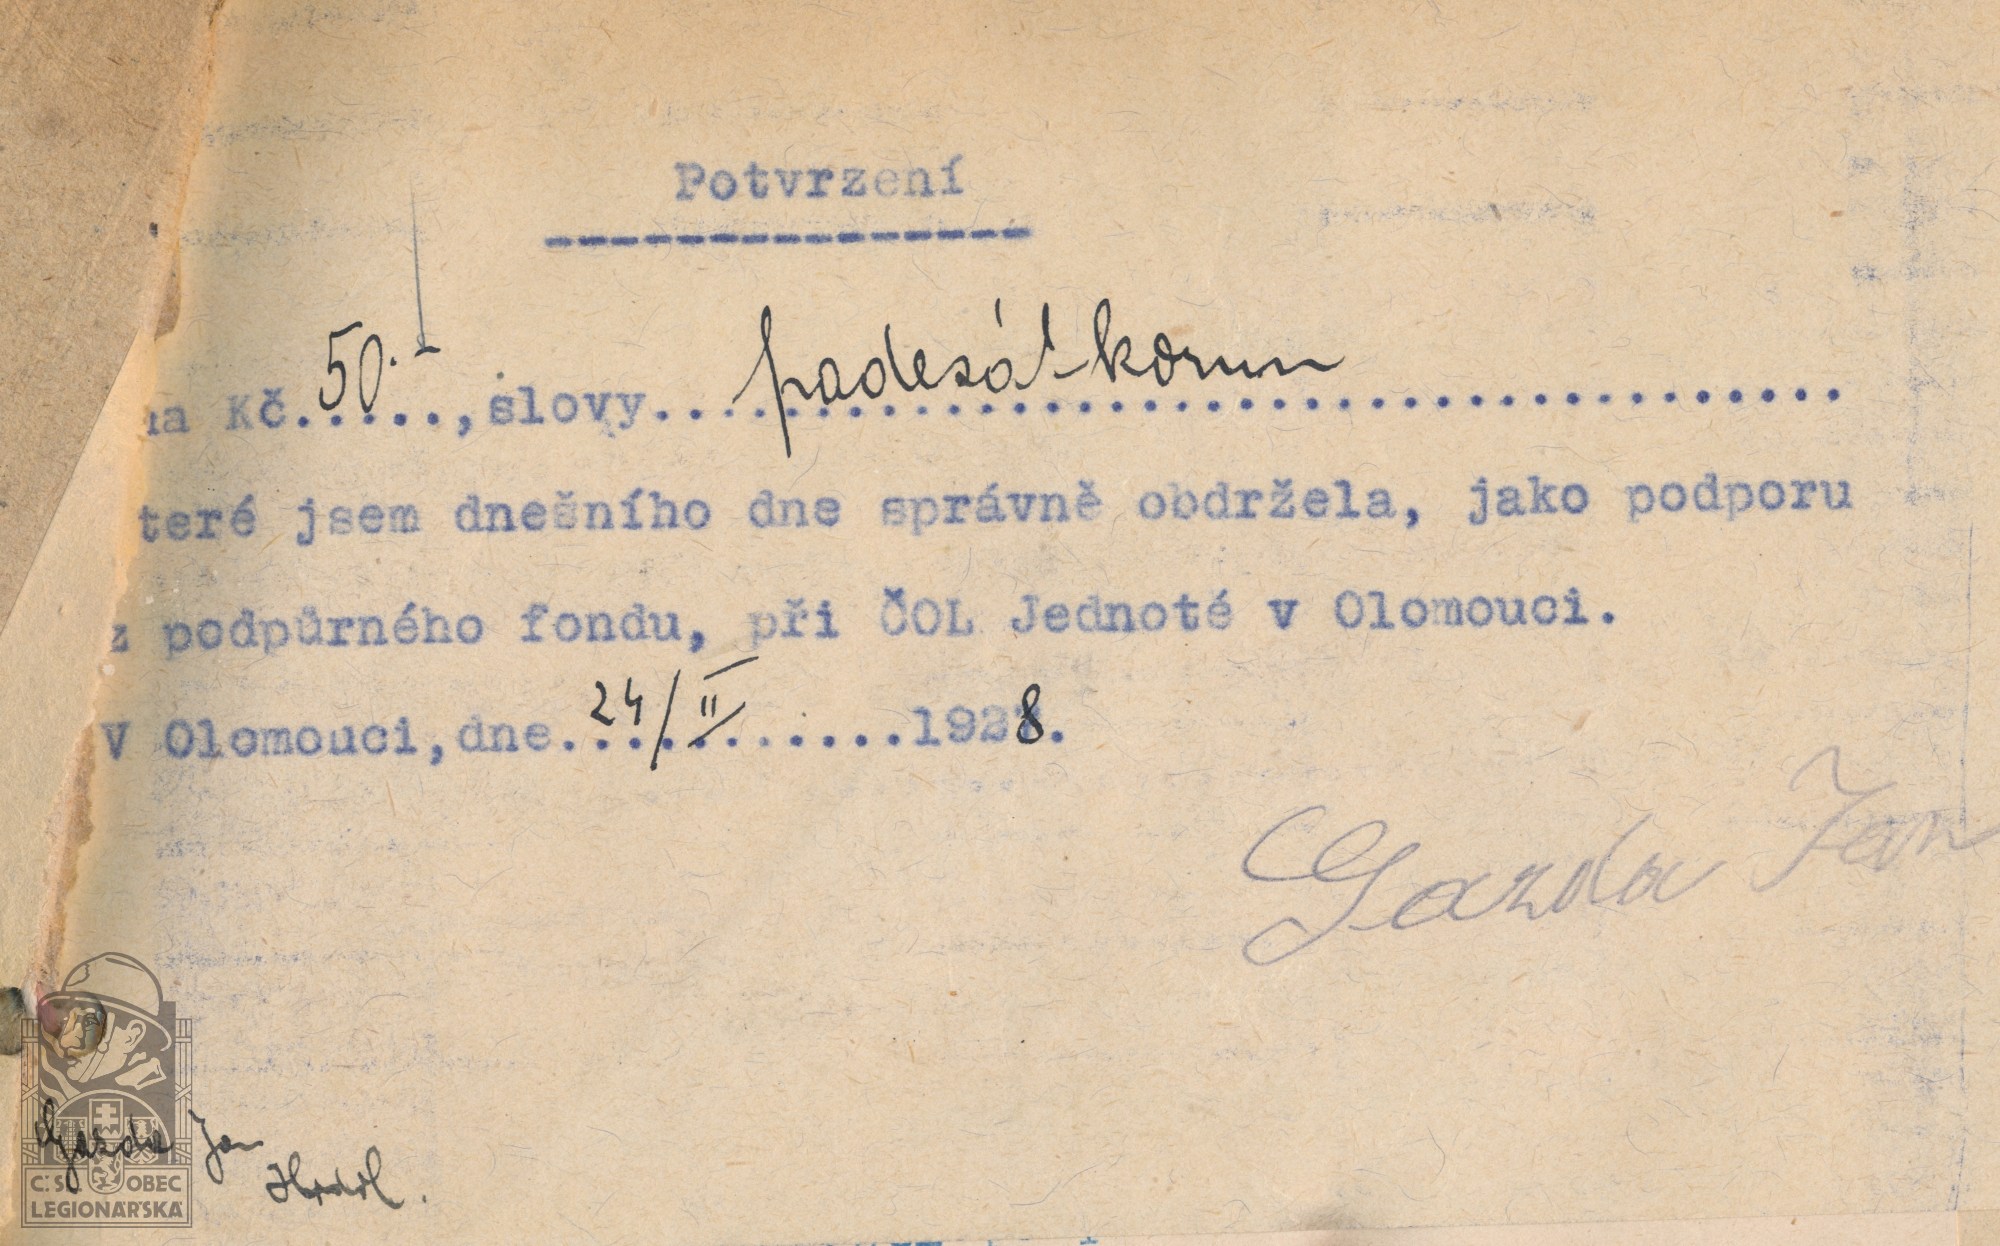 Potvrzení
na Kč.50.-....,slovy...padesát korun...............
teré jsem dnešního dne správně obdržela, jako podporu
z podpůrného fondu, při ČOL Jednotě v Olomouci.
V Olomouci,dne.24/II..........1928.
Gazda Jan
Gazda Jan
Č:SL. OBEC
LEGIONÁŘSKÁ